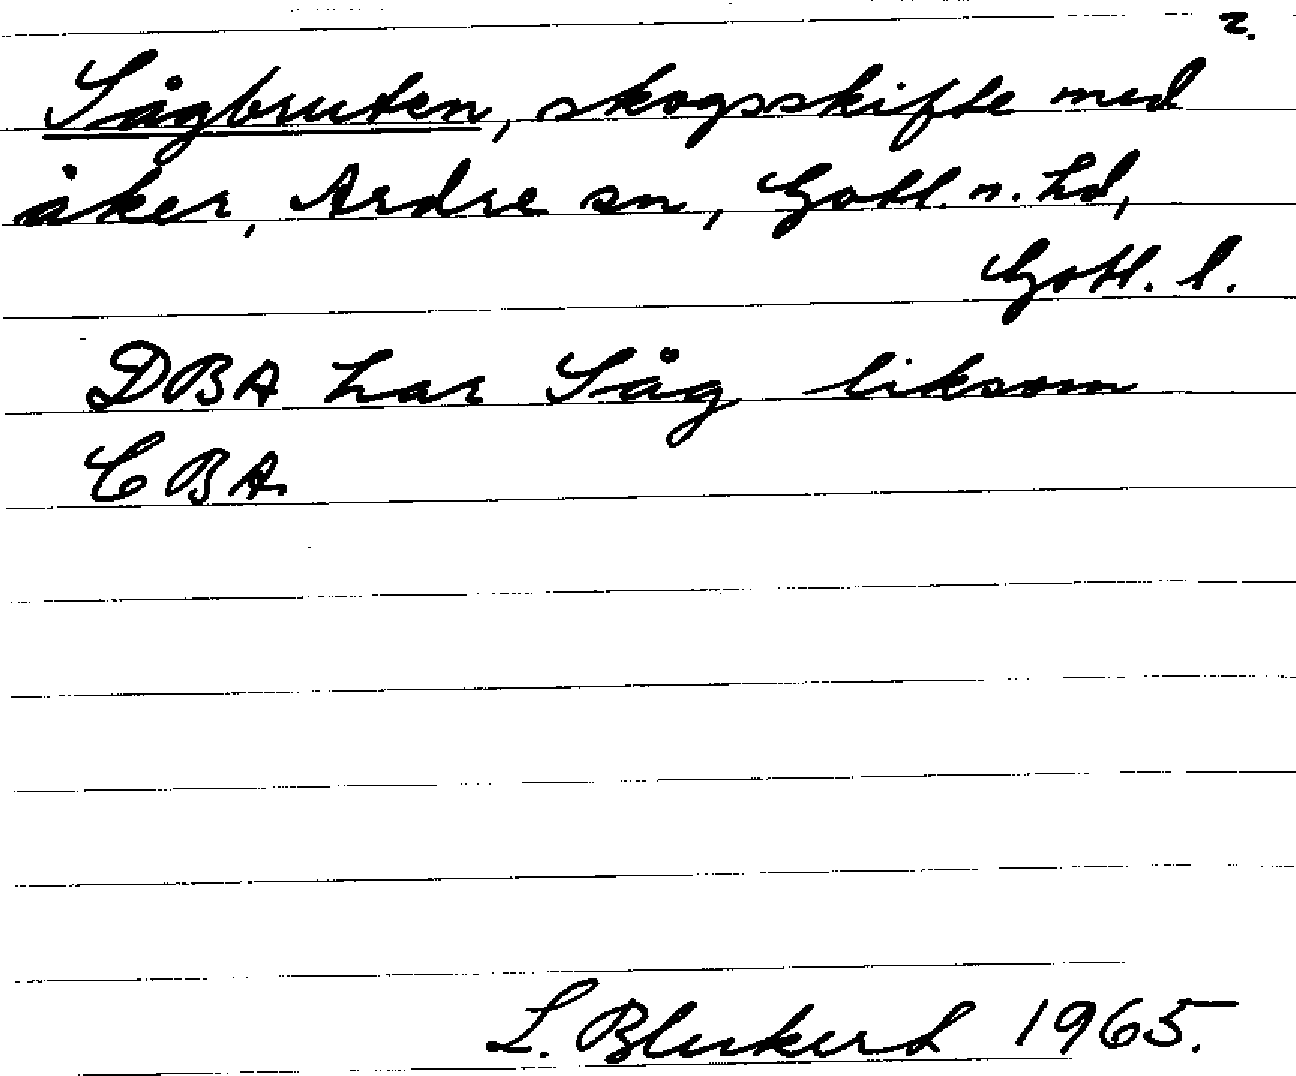 2.
Sågbruten, skogsskifte med
åker, Ardre sn, Gotl. n. hd,
Gotl. l.
DBA har Såg liksom
CBA.
L. Blukert 1965.